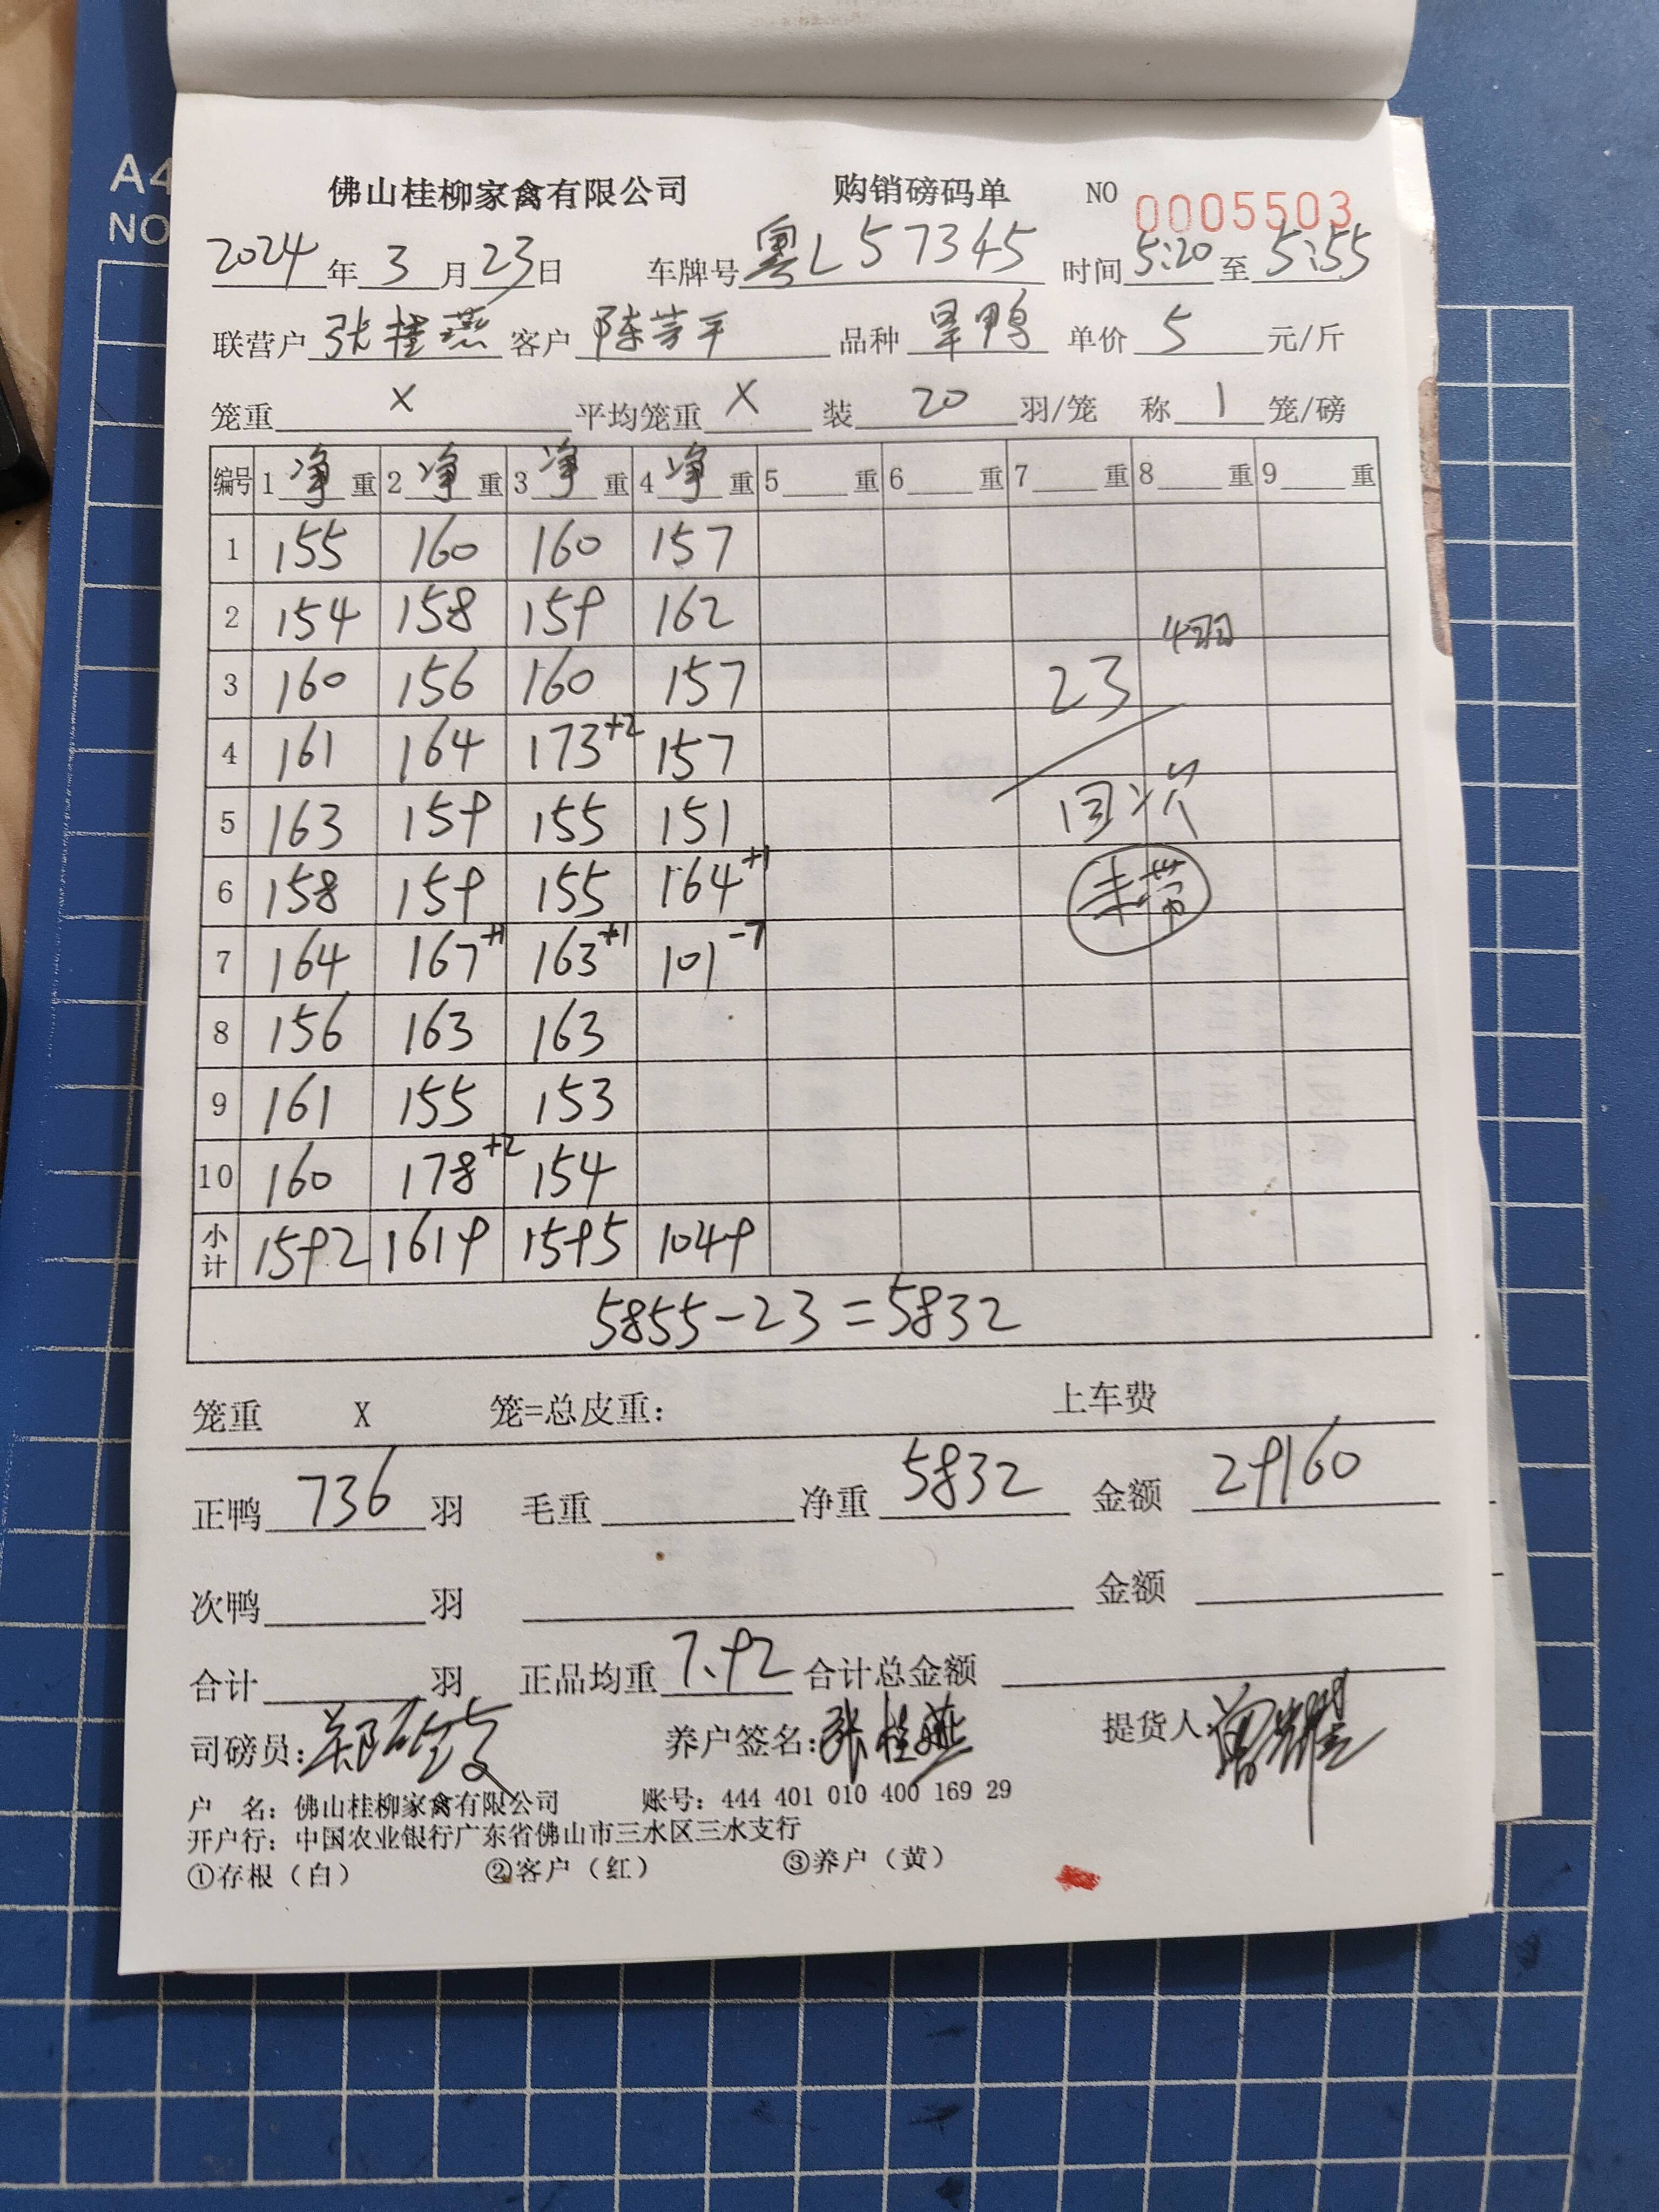 A4
NO
佛山桂柳家禽有限公司 购销磅码单 NO 0005503
2024年3月23日 车牌号粤L57345 时间5:20至5:55
联营户张桂燕 客户陈芳平 品种旱鸭 单价5元/斤
笼重X 平均笼重X 装20羽/笼 称1笼/磅
编号 1净重 2净重 3净重 4净重 5重 6重 7重 8重 9重
1 155 160 160 157
2 154 158 159 162 4羽
3 160 156 160 157 23
4 161 164 173+2 157
5 163 159 155 151 回次
6 158 159 155 164+1 未带
7 164 167+1 163+1 101-7
8 156 163 163
9 161 155 153
10 160 178+2 154
小计 1592 1619 1595 1049
5855-23=5832
笼重 X 笼=总皮重: 上车费
正鸭736羽 毛重 净重5832 金额29160
次鸭 羽 金额
合计 羽 正品均重7.92 合计总金额
司磅员: 养户签名:张桂燕 提货人:
户 名: 佛山桂柳家禽有限公司 账号: 444 401 010 400 169 29
开户行: 中国农业银行广东省佛山市三水区三水支行
①存根（白） ②客户（红） ③养户（黄）